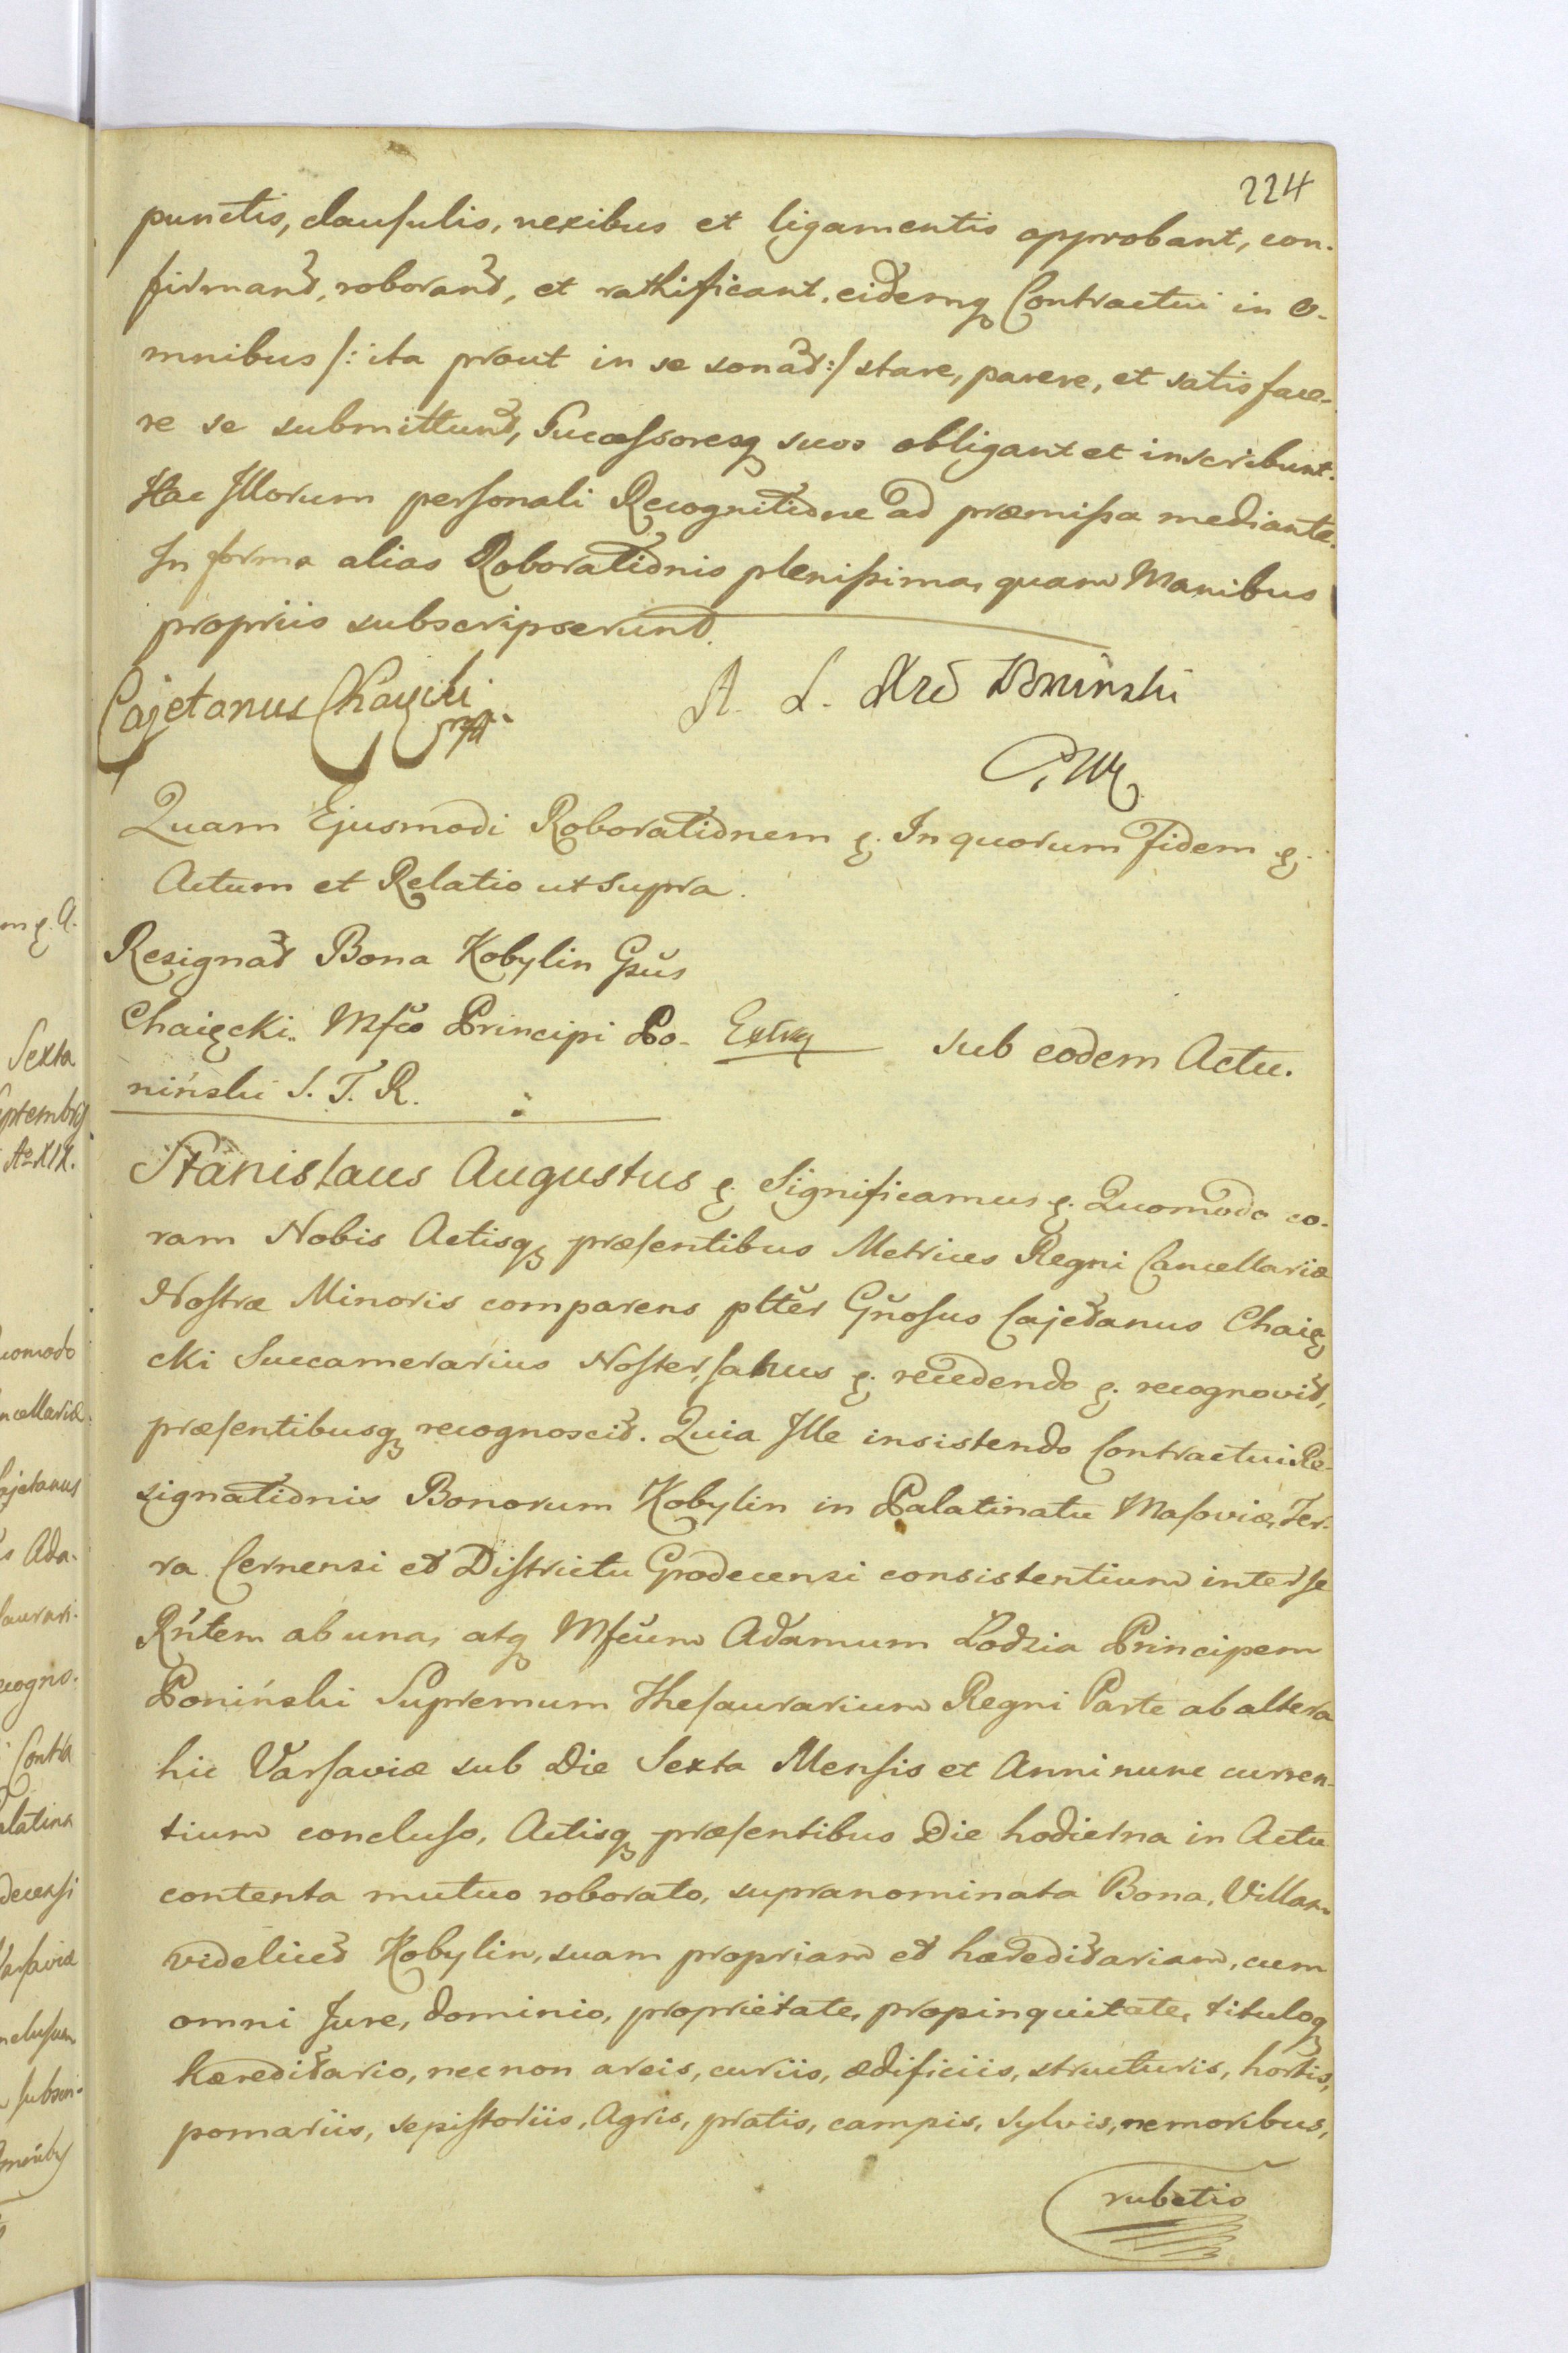 224
punctis, clausulis, nexibus et ligamentis approbant, con-
firmant, roborant, et rathificant, eidemq Contractui in o-
mnibus /: ita prout in se sonat :/ stare, parere, et satisface-
re se submittunt, Successoresq suos obligant et inscribunt.
Hac Illorum personali Recognitione ad præmissa mediante.
In forma alias Roborationis plenissima, quam Manibus
propriis subscripserunt.
Cajetanus Chaycki mp.
A. L. Xże Poninski
P. W.
Quam Ejusmodi Roborationem ę. In quorum Fidem ę.
Actum et Relatio ut supra.
Resignat Bona Kobylin Gsus
Chaięcki. Mfco Principi Po- Extra sub eodem Actu.
niński S. T. R.
Stanislaus Augustus ę. Significamus ę. Quomodo co-
ram Nobis Actisq præsentibus Metrices Regni Cancellariæ
Nostræ Minoris comparens plter Gnosus Cajetanus Chaię
cki Succamerarius Noster, sanus ę. recedendo ę. recognovit,
præsentibusq recognoscit. Quia Ille insistendo Contractui Re-
signationis Bonorum Kobylin in Palatinatu Masoviæ, Ter-
ra Cernensi et Districtu Grodecensi consistentium inter se
Rntem ab una, atq Mfcum Adamum Lodzia Principem
Poniński Supremum Thesaurarium Regni Parte ab altera
hic Varsaviæ sub Die Sexta Mensis et Anni nunc curren-
tium concluso, Actisq præsentibus Die hodierna in Actu
contenta mutuo roborato, supranominata Bona, Villam
videlicet Kobylin, suam propriam et hæreditariam, cum
omni Jure, dominio, proprietate, propinquitate, tituloq
hæreditario, necnon areis, curiis, ædificiis, structuris, hortis,
pomariis, sepistoriis, Agris, pratis, campis, sylvis, nemoribus,
rubetis
m ę. A.
Sexta
Septembris
Ao XIX.
uomodo
ncellariæ
Cajetanus
s Ada-
saurari-
ecogno-
Contra
alatina
decensi
Varsaviæ
nclusum
subscri-